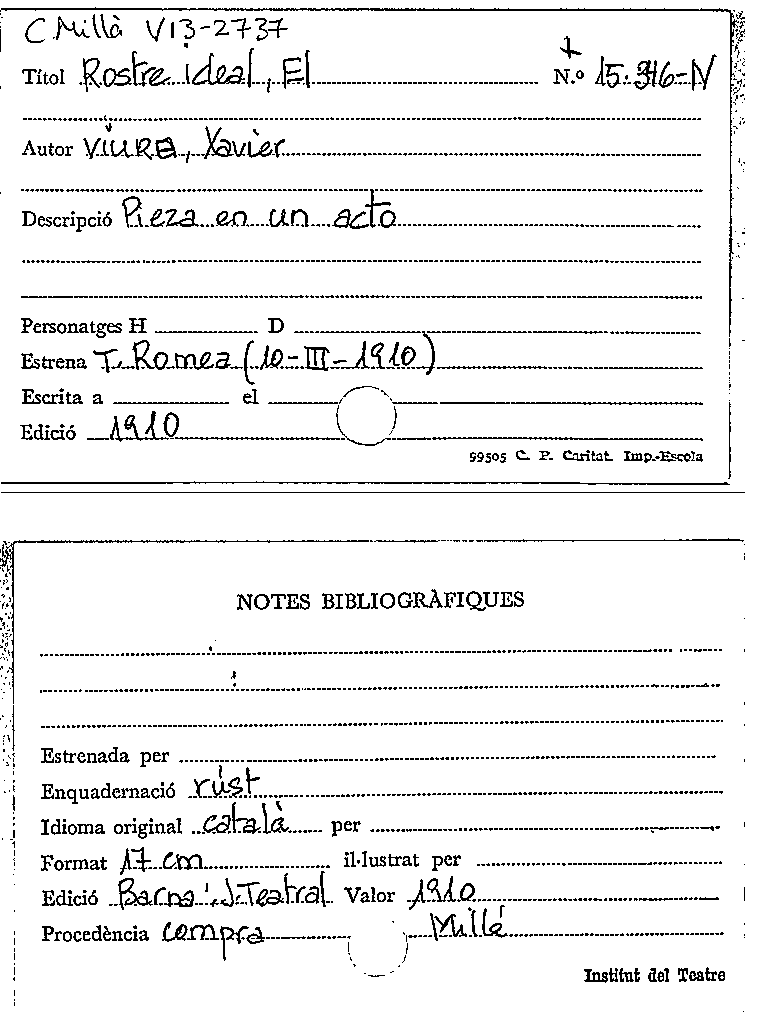 C Millà V13-2737
Títol Rostre ideal, El N.º 15.316-N
Autor VIURA, Xavier
Descripció Pieza en un acto
Personatges H D
Estrena T. Romea (10-III-1910)
Escrita a el
Edició 1910
99505 C. P. Caritat. Imp.-Escola
NOTES BIBLIOGRÀFIQUES
Estrenada per
Enquadernació rúst
Idioma original català per
Format 17 cm il·lustrat per
Edició Barna: Teatral Valor 1910
Procedència compra Millá
Institut del Teatre